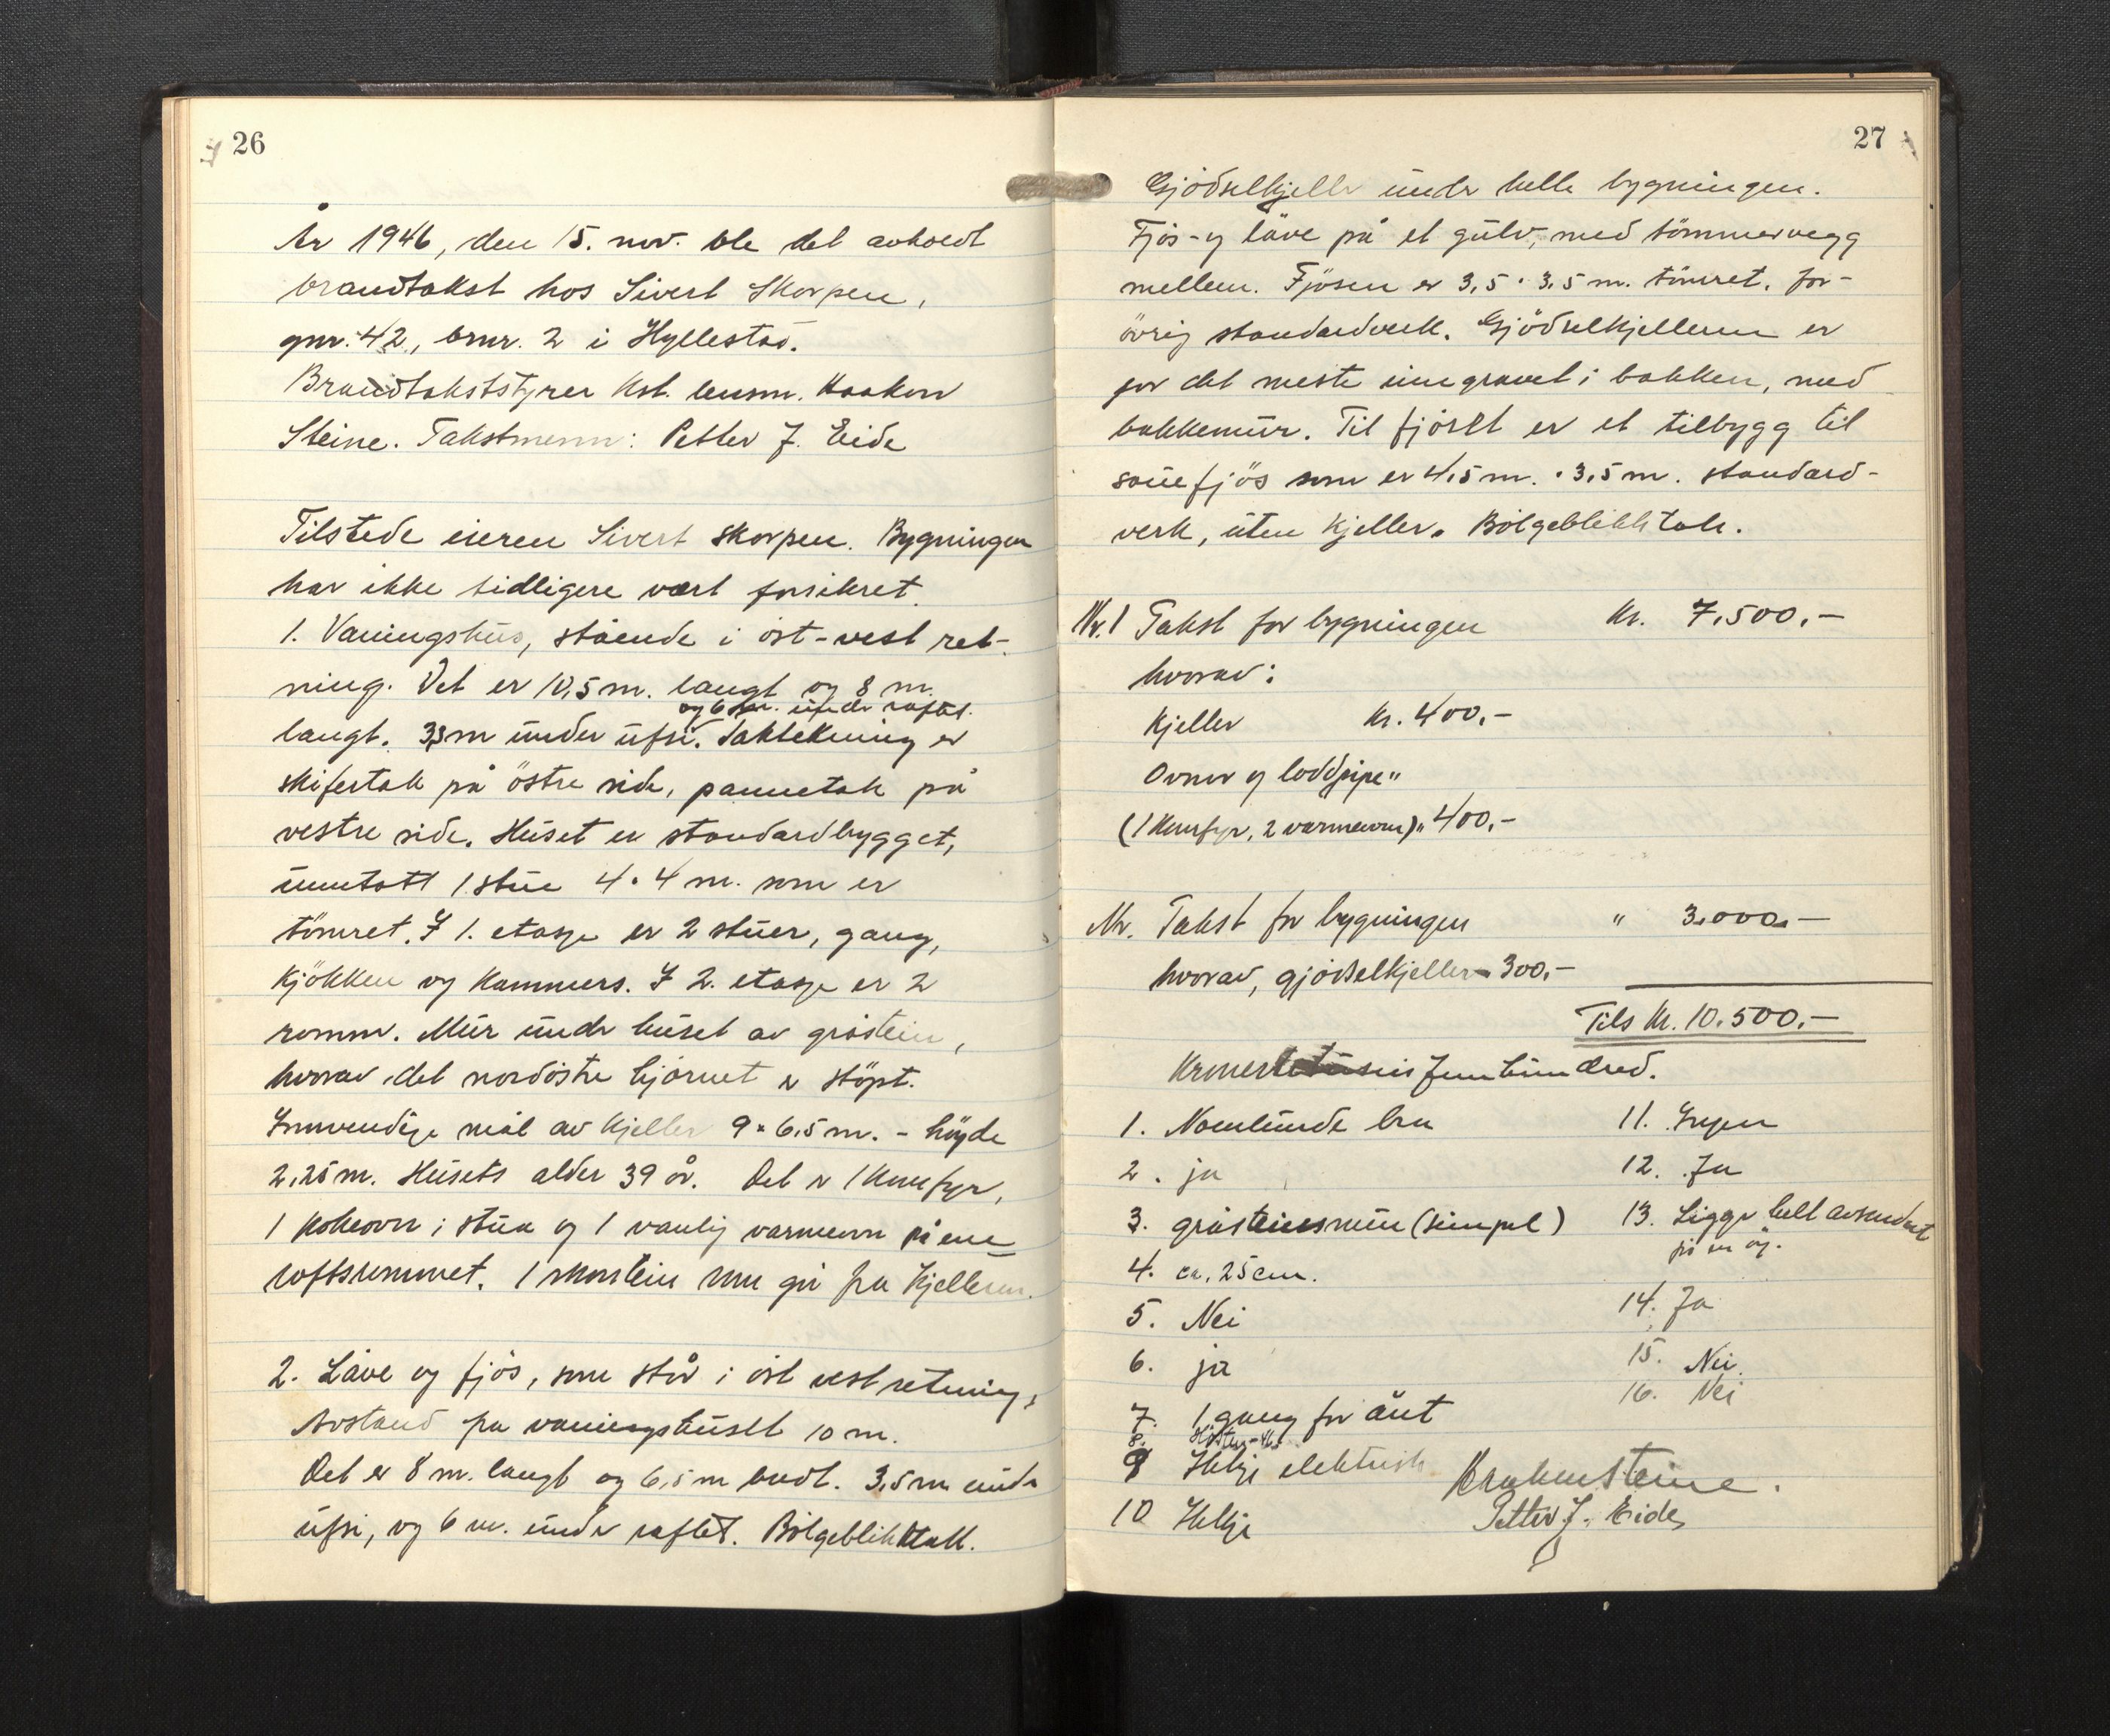 26
År 1946, den 15. nov. ble det avholdt
brandtakst hos Sivert Skorpen,
gnr. 42, bnr. 2 i Hyllestad.
Brandtakststyrer Kst. lensm. Haakon
Steine. Takstmenn: Petter J. Eide
Tilstede eieren Sivert Skorpen. Bygningen
har ikke tidligere vært forsikret.
1. Vaningshus, stående i öst-vest ret-
ning. Det er 10,5 m. langt og 8 m.
og 6 m. under raftet.
langt. 3,3 m under ufsi. Taktekning er
skifertak på östre side, pannetak på
vestre side. Huset er standardbygget,
unntatt 1 stue 4 · 4 m. som er
tömret. I 1. etasje er 2 stuer, gang,
kjökken og kammers. I 2. etasje er 2
romm. Mur under huset av gråstein,
hvorav det nordöstre hjörnet er stöpt.
Innvendige mål av kjeller 9 × 6,5 m. - höyde
2,25 m. Husets alder 39 år. Det er 1 komfyr,
1 kokeovn i stua og 1 vanlig varmeovn på ene
loftsrummet. 1 skorstein som går fra kjelleren.
2. Låve og fjös, som står i öst vest retning,
Avstand fra vaningshuset 10 m.
Det er 8 m. langt og 6,5 m bredt. 3,5 m under
ufsi, og 6 m. under raftet. Bölgeblikktak.
27
Gjödselkjeller under hele bygningen.
Fjös- og låve på et gulv, med tömmervegg
mellem. Fjösen er 3,5 · 3,5 m. tömret, for-
övrig standardverk. Gjödselkjelleren er
for det meste inngravet i bakken, med
bakkemur. Til fjöset er et tilbygg til
sauefjös som er 4,5 m. · 3,5 m. standard-
verk, uten kjeller. Bölgeblikktak.
Nr. 1 Takst for bygningen Kr. 7.500,-
hvorav:
Kjeller Kr. 400,-
Ovner og loddpipe "
(1 komfyr, 2 varmeovn) " 400,-
Nr. Takst for bygningen " 3.000,-
hvorav, gjödselkjeller - 300,-
Tils kr. 10.500,-
Kroner femhundred.
1. bra
2. ja
3. gråsteinsmur (simpel)
4. ca. 25 cm.
5. Nei
6. ja
7. 1 gang for året
8.
9 elektrisk
10
11. Ingen
12. Ja
13. Ligger helt avsondret
på en öy.
14. Ja
15. Nei.
16. Nei
Haakon Steine.
Petter J. Eide